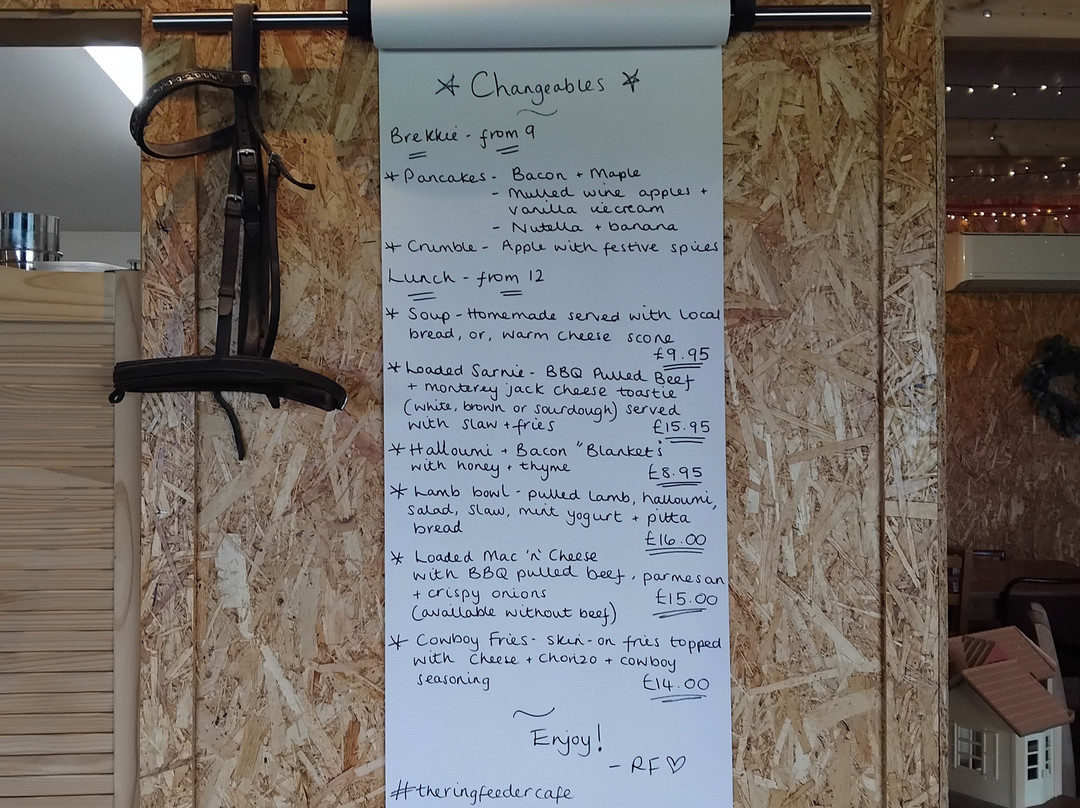 * Changeables *
Brekkie - from 9
* Pancakes - Bacon + Maple
- Mulled wine apples +
vanilla icecream
- Nutella + banana
* Crumble - Apple with festive spices
Lunch - from 12
* Soup - Homemade served with local
bread, or, warm cheese scone
£9.95
* Loaded Sarnie - BBQ Pulled Beef
+ monterey jack cheese toastie
(white, brown or sourdough) served
with slaw + fries £15.95
* Halloumi + Bacon "Blankets"
with honey + thyme £8.95
* Lamb bowl - pulled lamb, halloumi,
salad, slaw, mint yogurt + pitta
bread £16.00
* Loaded Mac 'n' Cheese
with BBQ pulled beef, parmesan
+ crispy onions £15.00
(available without beef)
* Cowboy Fries - skin-on fries topped
with cheese + chorizo + cowboy
seasoning £14.00
Enjoy!
- RF ♡
#theringfeedercafe